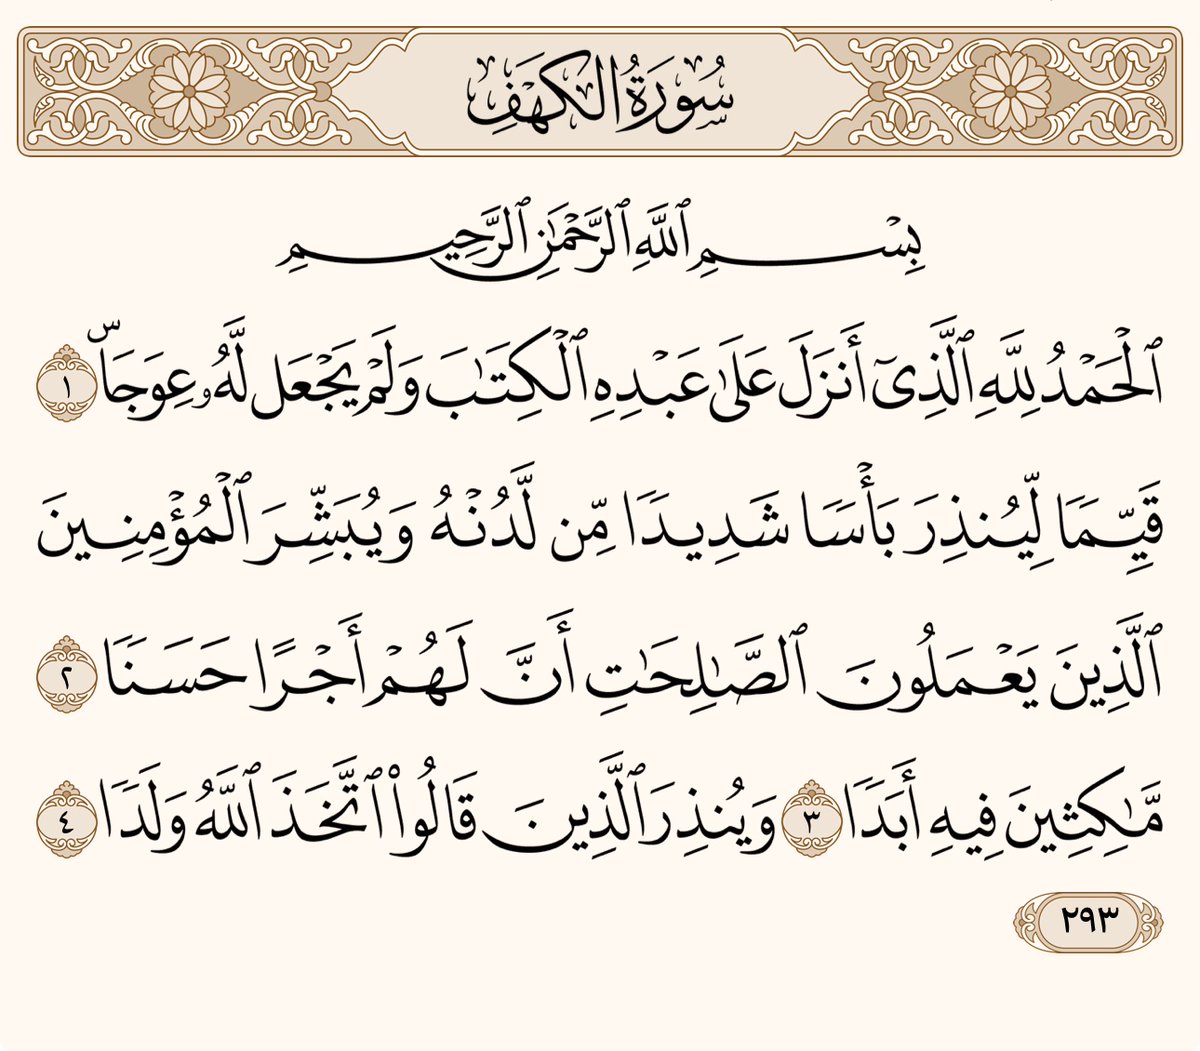 سُورَةُ الكَهۡفِ
بِسۡمِ ٱللَّهِ ٱلرَّحۡمَٰنِ ٱلرَّحِيمِ
ٱلۡحَمۡدُ لِلَّهِ ٱلَّذِيٓ أَنزَلَ عَلَىٰ عَبۡدِهِ ٱلۡكِتَٰبَ وَلَمۡ يَجۡعَل لَّهُۥ عِوَجَاۜ ١
قَيِّمٗا لِّيُنذِرَ بَأۡسٗا شَدِيدٗا مِّن لَّدُنۡهُ وَيُبَشِّرَ ٱلۡمُؤۡمِنِينَ
ٱلَّذِينَ يَعۡمَلُونَ ٱلصَّٰلِحَٰتِ أَنَّ لَهُمۡ أَجۡرًا حَسَنٗا ٢
مَّٰكِثِينَ فِيهِ أَبَدٗا ٣ وَيُنذِرَ ٱلَّذِينَ قَالُواْ ٱتَّخَذَ ٱللَّهُ وَلَدٗا ٤
٢٩٣